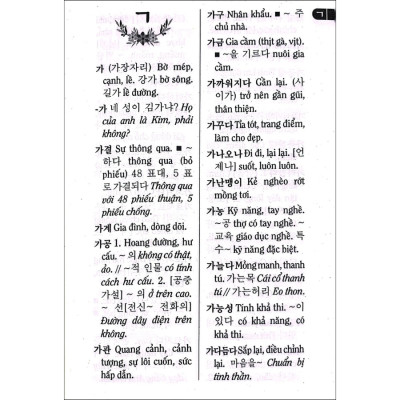 ㄱ
가 (가장자리) Bờ mép,
cạnh, lề. 강가 bờ sông.
길가 lề đường.
-가 네 성이 김가냐? Họ
của anh là Kim, phải
không?
가결 Sự thông qua. ■ ~
하다 thông qua (bỏ
phiếu) 48 표대, 5 표
로 가결되다 Thông qua
với 48 phiếu thuận, 5
phiếu chống.
가계 Gia đình, dòng dõi.
가공 1. Hoang đường, hư
cấu. ~ 의 không có thật,
ảo. // ~적 인물 có tính
cách hư cấu. 2. [공중
가설] ~ 의 ở trên cao.
~ 선[전신~ 전화의]
Đường dây điện trên
không.
가관 Quang cảnh, cảnh
tượng, sự lôi cuốn, sức
hấp dẫn.
가구 Nhân khẩu. ■ ~ 주
chủ nhà.
가금 Gia cầm (thịt gà, vịt).
■ ~을 기르다 nuôi gia
cầm.
가까워지다 Gần lại. (사
이가) trở nên gần gũi,
thân thiện.
가꾸다 Tỉa tót, trang điểm,
làm cho đẹp.
가나오나 Đi đi, lại lại. [언
제나] suốt, luôn luôn.
가난뱅이 Kẻ nghèo rớt
mồng tơi.
가능 Kỹ năng, tay nghề.
~공 thợ có tay nghề. ~
교육 giáo dục nghề. 특
수~ kỹ năng đặc biệt.
가늘다 Mỏng manh, thanh
tú. 가는목 Cái cổ thanh
tú // 가는허리 Eo thon.
가능성 Tính khả thi. ~이
있다 có khả năng, có
khả thi.
가다듬다 Sắp lại, điều chỉnh
lại. 마음을~ Chuẩn bị
tinh thần.
ㄱ